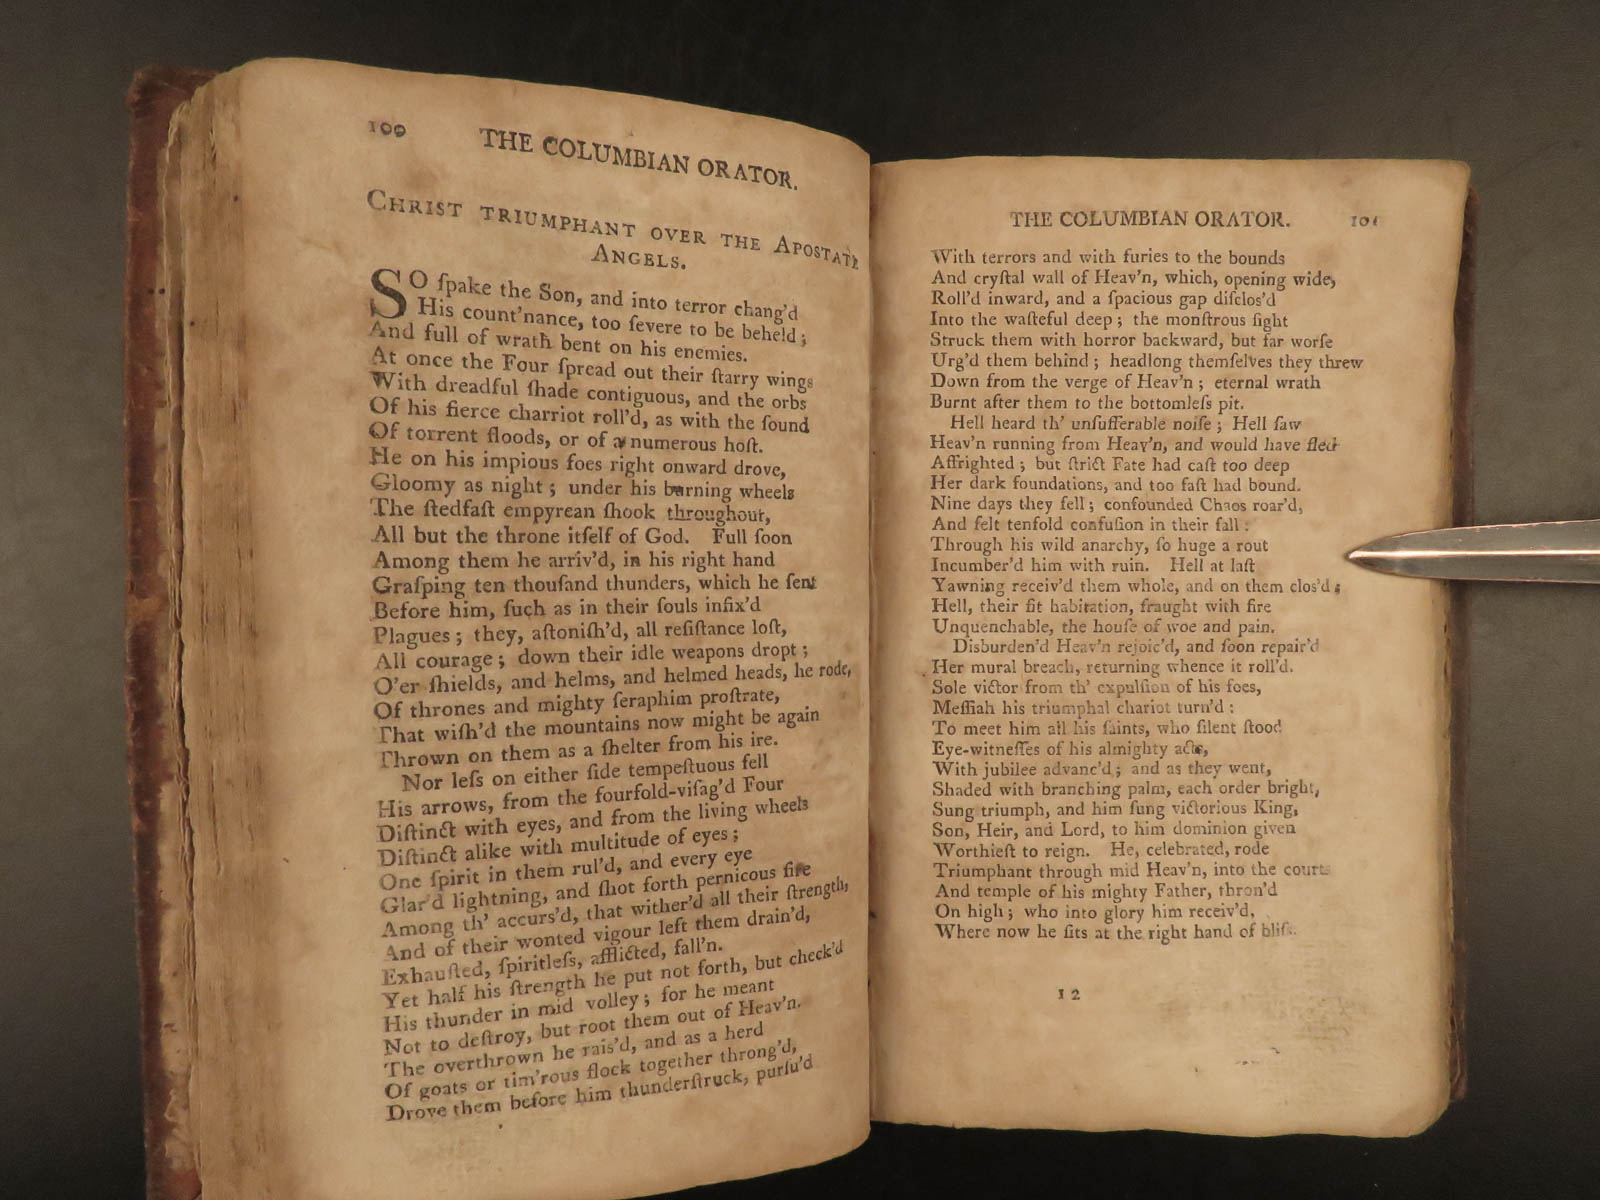 100
THE COLUMBIAN ORATOR.
CHRIST TRIUMPHANT OVER THE APOSTATE
ANGELS.
SO ſpake the Son, and into terror chang'd
His count'nance, too ſevere to be beheld;
And full of wrath bent on his enemies.
At once the Four ſpread out their ſtarry wings
With dreadful ſhade contiguous, and the orbs
Of his fierce charriot roll'd, as with the ſound
Of torrent floods, or of a numerous hoſt.
He on his impious foes right onward drove,
Gloomy as night; under his burning wheels
The ſtedfaſt empyrean ſhook throughout,
All but the throne itſelf of God. Full ſoon
Among them he arriv'd, in his right hand
Graſping ten thouſand thunders, which he ſent
Before him, ſuch as in their ſouls infix'd
Plagues; they, aſtoniſh'd, all reſiſtance loſt,
All courage; down their idle weapons dropt;
O'er ſhields, and helms, and helmed heads, he rode,
Of thrones and mighty ſeraphim proſtrate,
That wiſh'd the mountains now might be again
Thrown on them as a ſhelter from his ire.
Nor leſs on either ſide tempeſtuous fell
His arrows, from the fourfold-viſag'd Four
Diſtinct with eyes, and from the living wheels
Diſtinct alike with multitude of eyes;
One ſpirit in them rul'd, and every eye
Glar'd lightning, and ſhot forth pernicous fire
Among th' accurs'd, that wither'd all their ſtrength,
And of their wonted vigour left them drain'd,
Exhauſted, ſpiritleſs, afflicted, fall'n.
Yet half his ſtrength he put not forth, but check'd
His thunder in mid volley; for he meant
Not to deſtroy, but root them out of Heav'n.
The overthrown he rais'd, and as a herd
Of goats or tim'rous flock together throng'd,
Drove them before him thunderſtruck, purſu'd
THE COLUMBIAN ORATOR.
101
With terrors and with furies to the bounds
And cryſtal wall of Heav'n, which, opening wide,
Roll'd inward, and a ſpacious gap diſclos'd
Into the waſteful deep; the monſtrous ſight
Struck them with horror backward, but far worſe
Urg'd them behind; headlong themſelves they threw
Down from the verge of Heav'n; eternal wrath
Burnt after them to the bottomleſs pit.
Hell heard th' unſufferable noiſe; Hell ſaw
Heav'n running from Heav'n, and would have fled
Affrighted; but ſtrict Fate had caſt too deep
Her dark foundations, and too faſt had bound.
Nine days they fell; confounded Chaos roar'd,
And felt tenfold confuſion in their fall:
Through his wild anarchy, ſo huge a rout
Incumber'd him with ruin. Hell at laſt
Yawning receiv'd them whole, and on them clos'd;
Hell, their fit habitation, fraught with fire
Unquenchable, the houſe of woe and pain.
Disburden'd Heav'n rejoic'd, and ſoon repair'd
Her mural breach, returning whence it roll'd.
Sole victor from th' expulſion of his foes,
Meſſiah his triumphal chariot turn'd:
To meet him all his ſaints, who ſilent ſtood
Eye-witneſſes of his almighty acts,
With jubilee advanc'd; and as they went,
Shaded with branching palm, each order bright,
Sung triumph, and him ſung victorious King,
Son, Heir, and Lord, to him dominion given
Worthieſt to reign. He, celebrated, rode
Triumphant through mid Heav'n, into the courts
And temple of his mighty Father, thron'd
On high; who into glory him receiv'd,
Where now he ſits at the right hand of bliſs.
I 2